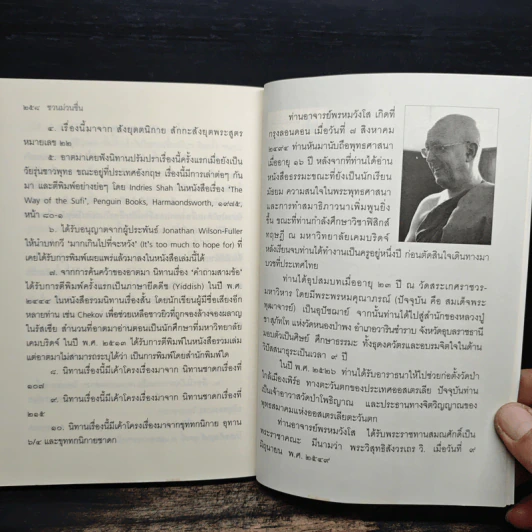 ๒๕๘ ชวนม่วนชื่น
๔. เรื่องนี้มาจาก สังยุตตนิกาย สักกะสังยุตพระสูตร
หมายเลข ๒๒
๕. อาตมาเคยฟังนิทานปรัมปราเรื่องนี้ครั้งแรกเมื่อยังเป็น
วัยรุ่นชาวพุทธ ขณะอยู่ที่ประเทศอังกฤษ เรื่องนี้มีการเล่าต่อๆ กัน
มา และตีพิมพ์อย่างย่อๆ โดย Indries Shah ในหนังสือเรื่อง 'The
Way of the Sufi', Penguin Books, Harmaondsworth, ๑๙๗๕,
หน้า ๘๐-๑
๖. ได้รับอนุญาตจากผู้ประพันธ์ Jonathan Wilson-Fuller
ให้นำบทกวี 'มากเกินไปที่จะหวัง' (It's too much to hope for) ที่
เคยได้รับการพิมพ์เผยแพร่แล้วมาลงในหนังสือเล่มนี้ได้
๗. จากการค้นคว้าของอาตมา นิทานเรื่อง 'คำถามสามข้อ'
ได้รับการตีพิมพ์ครั้งแรกเป็นภาษายิดดิช (Yiddish) ในปี พ.ศ.
๒๔๔๔ ในหนังสือรวมนิทานเรื่องสั้น โดยนักเขียนผู้มีชื่อเสียงอีก
หลายท่าน เช่น Chekov เพื่อช่วยเหลือชาวยิวที่ถูกจองล้างจองผลาญ
ในรัสเซีย สำนวนที่อาตมาอ่านตอนเป็นนักศึกษาที่มหาวิทยาลัย
เคมบริดจ์ ในปี พ.ศ. ๒๕๑๓ ได้รับการตีพิมพ์ในหนังสือรวมเล่ม
แต่อาตมาไม่สามารถระบุได้ว่า เป็นการพิมพ์โดยสำนักพิมพ์ใด
๘. นิทานเรื่องนี้มีเค้าโครงเรื่องมาจาก นิทานชาดกเรื่องที่
๑๐๘
๙. นิทานเรื่องนี้มีเค้าโครงเรื่องมาจาก นิทานชาดกเรื่องที่
๒๑๕
๑๐. นิทานเรื่องนี้มีเค้าโครงเรื่องมาจากขุททกนิกาย อุทาน
๖/๔ และขุททกนิกายชาดก
ท่านอาจารย์พรหมวังโส เกิดที่
กรุงลอนดอน เมื่อวันที่ ๗ สิงหาคม
๒๔๙๔ ท่านหันมานับถือพุทธศาสนา
เมื่ออายุ ๑๖ ปี หลังจากที่ท่านได้อ่าน
หนังสือธรรมะขณะที่ยังเป็นนักเรียน
มัธยม ความสนใจในพระพุทธศาสนา
และการทำสมาธิภาวนาเพิ่มพูนยิ่ง
ขึ้น ขณะที่ท่านกำลังศึกษาวิชาฟิสิกส์
ทฤษฎี ณ มหาวิทยาลัยเคมบริดจ์
หลังเรียนจบท่านได้ทำงานเป็นครูอยู่หนึ่งปี ก่อนตัดสินใจเดินทางมา
บวชที่ประเทศไทย
ท่านได้อุปสมบทเมื่ออายุ ๒๓ ปี ณ วัดสระเกศราชวร-
มหาวิหาร โดยมีพระพรหมคุณาภรณ์ (ปัจจุบัน คือ สมเด็จพระ
พุฒาจารย์) เป็นอุปัชฌาย์ จากนั้นท่านได้ไปสู่สำนักของหลวงปู่
ชา สุภัทโท แห่งวัดหนองป่าพง อำเภอวารินชำราบ จังหวัดอุบลราชธานี
มอบตัวเป็นศิษย์ ศึกษาธรรมะ ทั้งธุดงควัตรและอบรมจิตใจในด้าน
วิปัสสนาธุระเป็นเวลา ๙ ปี
ในปี พ.ศ. ๒๕๒๖ ท่านได้รับอาราธนาให้ไปช่วยก่อตั้งวัดป่า
ใกล้เมืองเพิร์ธ ทางตะวันตกของประเทศออสเตรเลีย ปัจจุบันท่าน
เป็นเจ้าอาวาสวัดป่าโพธิญาณ และประธานทางจิตวิญญาณของ
พุทธสมาคมแห่งออสเตรเลียตะวันตก
ท่านอาจารย์พรหมวังโส ได้รับพระราชทานสมณศักดิ์เป็น
พระราชาคณะ มีนามว่า พระวิสุทธิสังวรเถร วิ. เมื่อวันที่ ๙
มิถุนายน พ.ศ. ๒๕๔๙